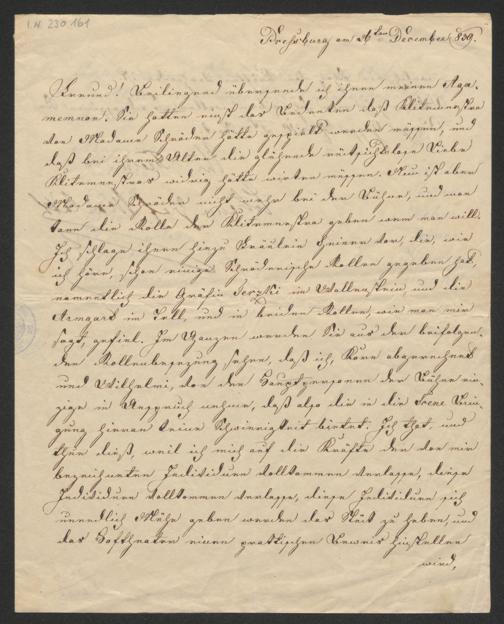 I.N. 230.161
Pressburg am 26ten December 839.
Freund! Beiliegend übersende ich ihnen meinen Aga-
memnon. Sie hatten einst das Bedenken daß Klitemnestra
von Madame Schröder hätte gespielt werden müssen, und
daß bei ihrem Alter die glühende rücksichtslose Liebe
Klitemnestras widrig hätte wirken müssen. Nun ist aber
Madame Schröder nicht mehr bei der Bühne, und man
kann die Rolle der Klitemnestra geben wem man will.
Ich schlage ihnen hiezu Fräulein vor, die, wie
ich höre, schon einige Schrödersche Rollen gegeben hat,
namentlich die Gräfin Terzki im Wallenstein und die
Armgart im Tell, und in beiden Rollen, wie man mir
sagt, gefiel. Im Ganzen werden Sie aus der beifolgen-
den Rollenbesezung sehen, daß ich, Korn abgerechnet
und Wilhelmi, von den Hauptpersonen der Bühne ein-
zige in Anspruch nehme, daß also die in die Scene Brin-
gung hieran keine Schwierigkeit bietet. Ich that, und
thue dieß, weil ich mich auf die Kräfte der von mir
bezeichneten Individuen vollkommen verlasse, diese
Individuen vollkommen verlasse, diese Individuen sich
unendlich Mühe geben werden das Stük zu heben, und
das Hoftheater einen praktischen Beweis hinstellen
wird,